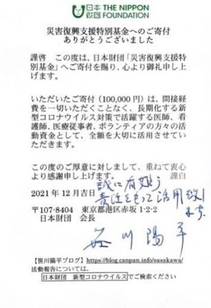 日本財団 THE NIPPON FOUNDATION
災害復興支援特別基金へのご寄付
ありがとうございました
謹啓 この度は、日本財団「災害復興支援特
別基金」へご寄付を賜り、心より御礼申し上
げます。
いただいたご寄付（100,000円）は、間接経
費を一切いただくことなく、長期化する新型
コロナウイルス対策で活躍する医師、看
護師、医療従事者、ボランティアの方々の活
動資金として、全額を大切に活用させていた
だきます。
この度のご厚意に対しまして、重ねて衷心
より感謝申し上げます。 謹白
誠に有難う
責任をもって活用致し
ます
2021年12月吉日
〒107-8404 東京都港区赤坂1-2-2
日本財団 会長
笹川陽平
【笹川陽平ブログ】https://blog.canpan.info/sasakawa/
活動報告については、
日本財団 新型コロナウイルス でご検索ください